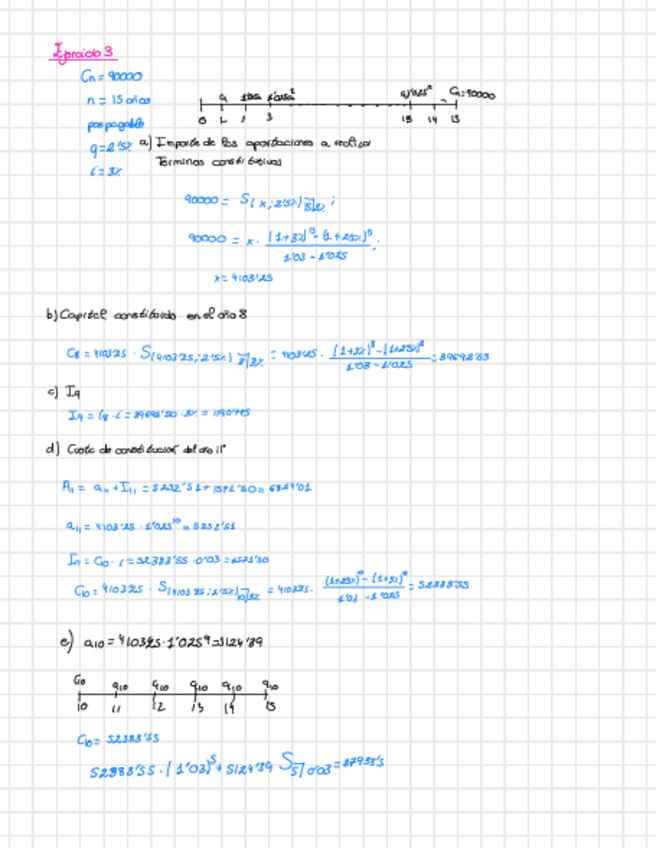 Ejercicio 3
Cn = 90000
n = 15 años
pospagable
q = 2'5%
i = 3%
Cn = 90000
0 1 3 13 14 15
a) Importe de las aportaciones a realizar
Términos constitutivos
90000 = S(x; 2'5%) 15|3% ;
90000 = x · (1+3%)^15 - (1+2'5%)^15 / 1'03 - 1'025 ;
x = 4103'25
b) Capital constituido en el año 8
C8 = 4103'25 · S(4103'25; 2'5%) 8|3% = 4103'25 · (1+3%)^8 - (1+2'5%)^8 / 1'03 - 1'025 = 39698'50
c) I9
I9 = C8 · i = 39698'50 · 3% = 1190'95
d) Cuota de constitución del año 11
A11 = a11 + I11 = 5252'51 + 1571'50 = 6824'01
a11 = 4103'25 · 1'025^10 = 5252'51
I11 = C10 · i = 52383'55 · 0'03 = 1571'50
C10 = 4103'25 · S(4103'25; 2'5%) 10|3% = 4103'25 · (1+2'5%)^10 - (1+3%)^10 / 1'03 - 1'025 = 52383'55
e) a10 = 4103'25 · 1'025^9 = 5124'39
C10 a10 a10 a10 a10 a10
10 11 12 13 14 15
C10 = 52383'55
52383'55 · (1'03)^5 + 5124'39 S 5|0'03 =